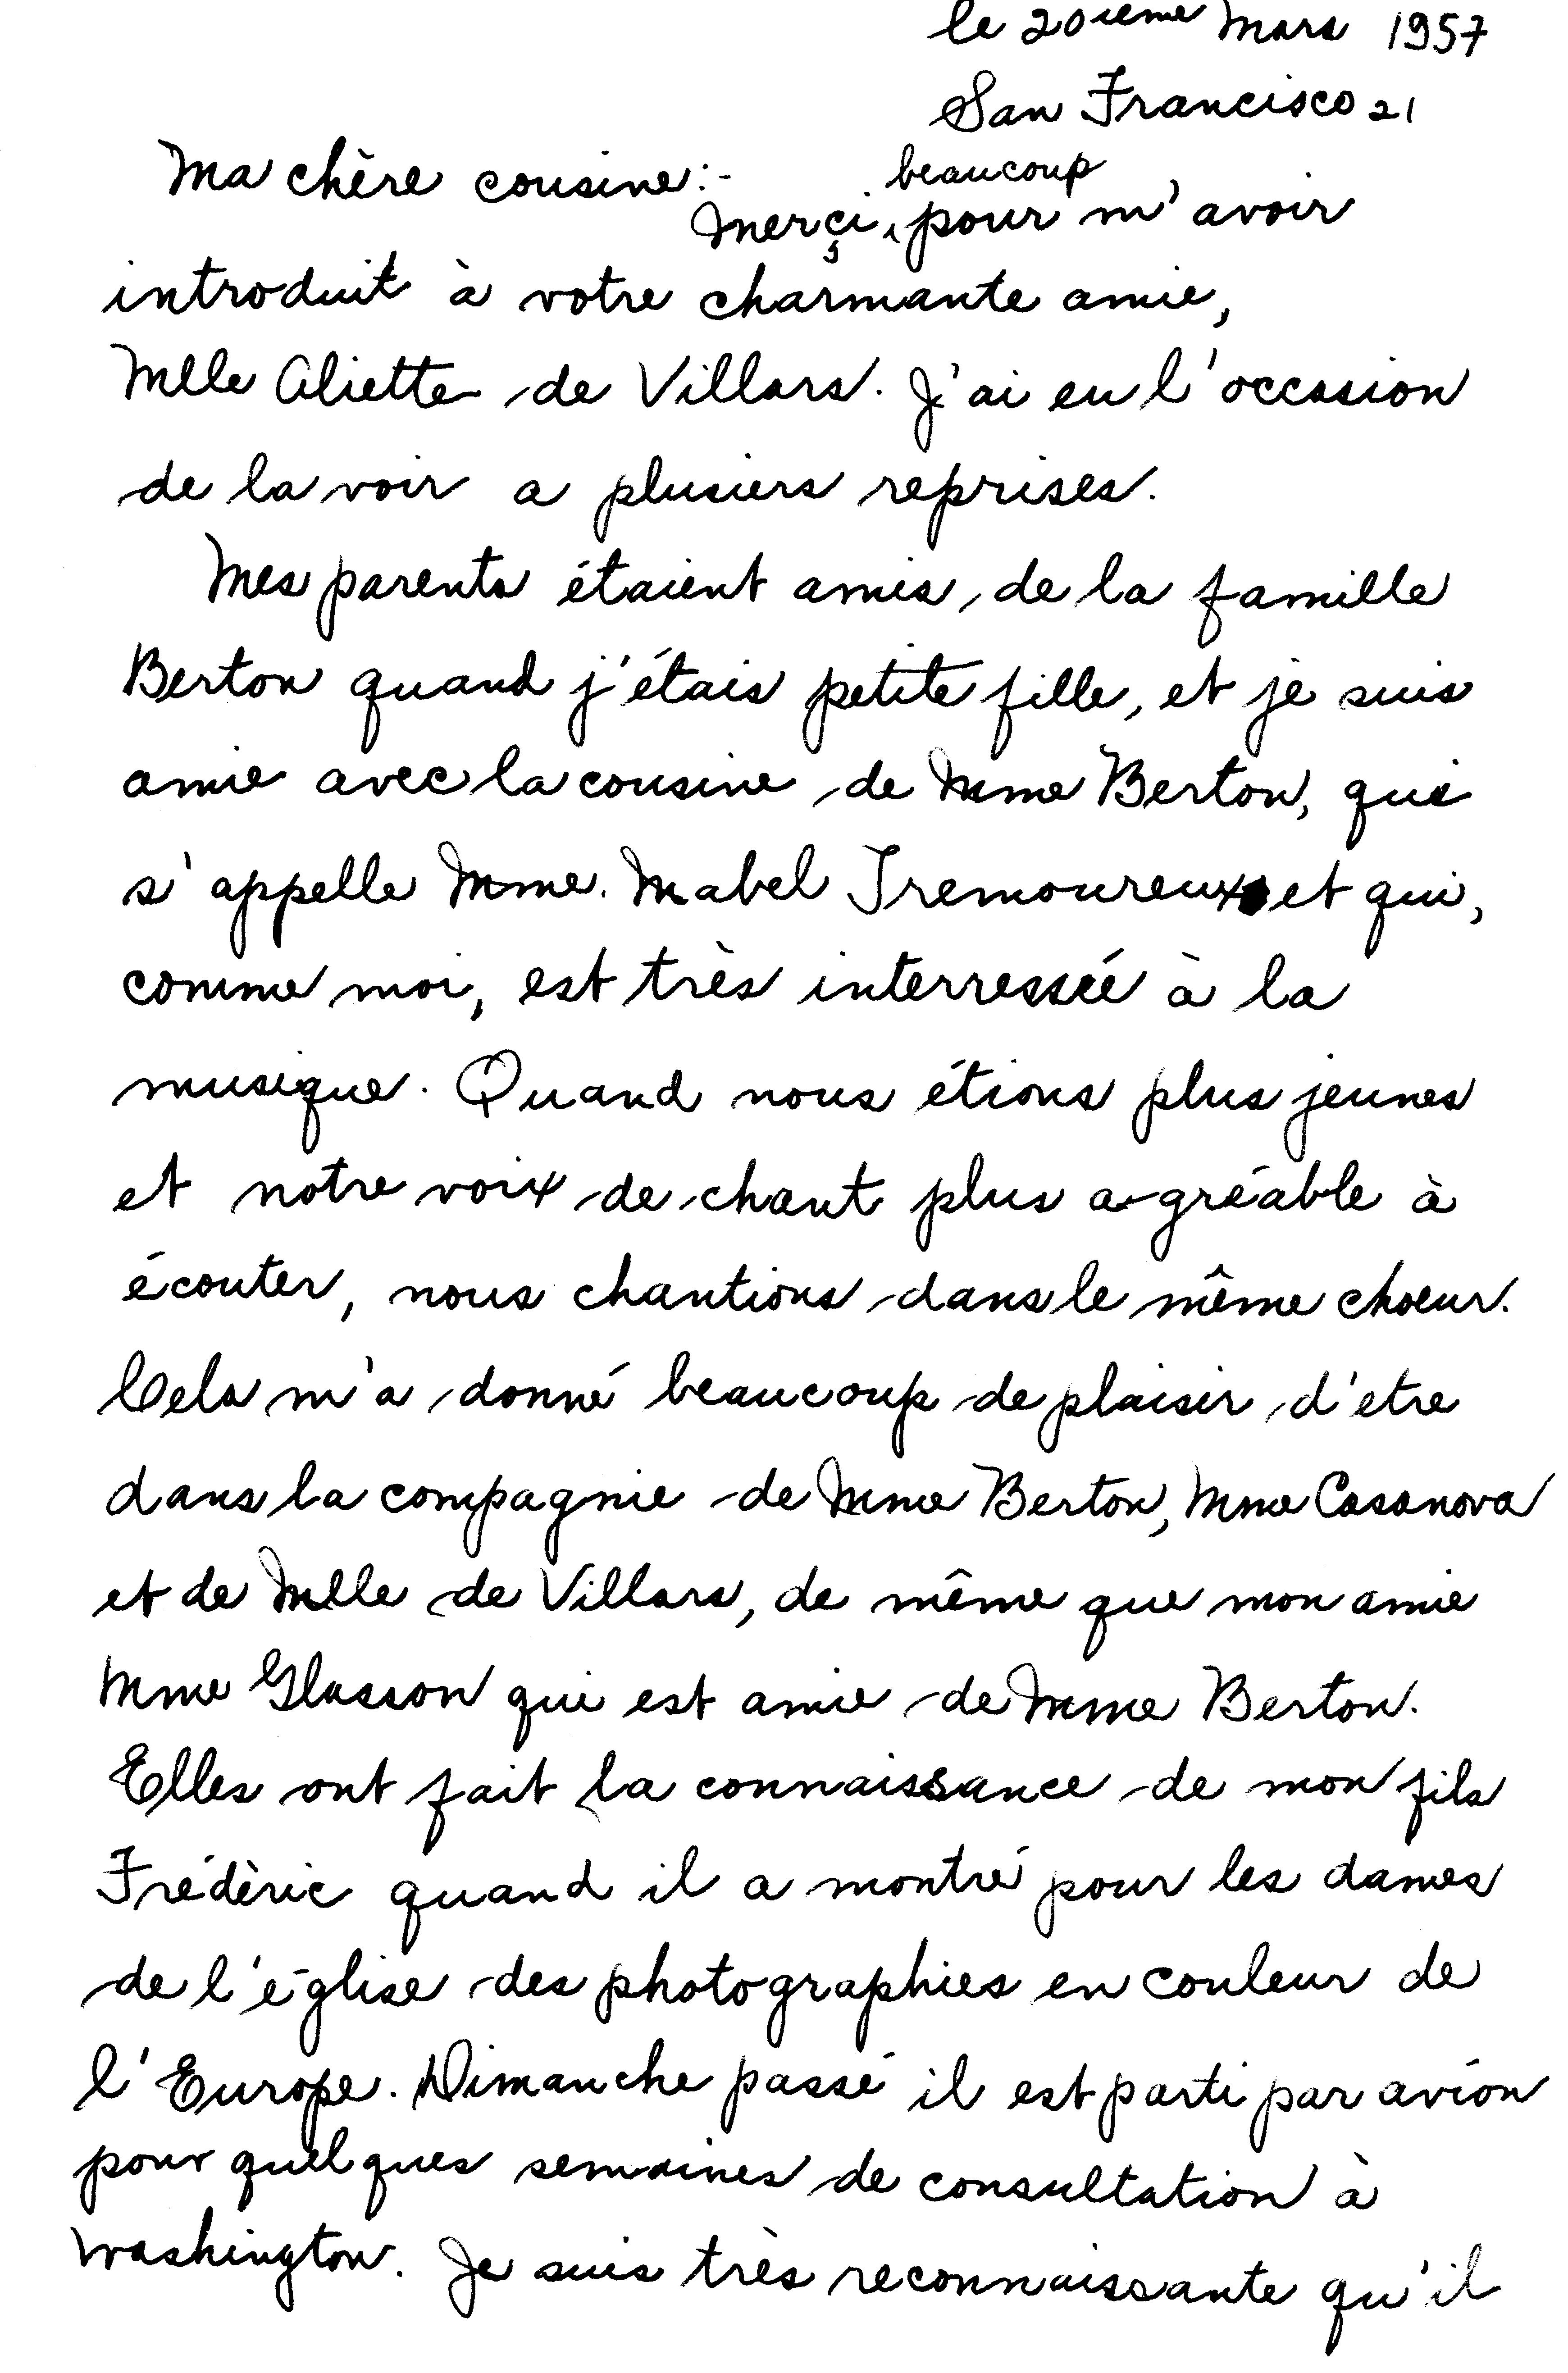 le 20ieme Mars 1957
San Francisco 21
Ma chère cousine:-
beaucoup
Merçi, pour m'avoir
introduit à votre charmante amie,
Mlle Aliette de Villars. J'ai eu l'occasion
de la voir a plusiers reprises.
Mes parents étaient amis, de la famille
Berton quand j'étais petite fille, et je suis
amie avec la cousine de Mme Berton, qui
s'appelle Mme. Mabel Tremoureux et qui,
comme moi, est très interressée à la
musique. Quand nous étions plus jeunes
et notre voix de chant plus agréable à
écouter, nous chantions dans le même choeur.
Cela m'a donné beaucoup de plaisir d'etre
dans la compagnie de Mme Berton, Mme Casanova
et de Mlle de Villars, de même que mon amie
Mme Glasson qui est amie de Mme Berton.
Elles ont fait la connaissance de mon fils
Frédèric quand il a montré pour les dames
de l'église des photographies en couleur de
l'Europe. Dimanche passé il est parti par avion
pour quelques semaines de consultation à
Washington. Je suis très reconnaissante qu'il